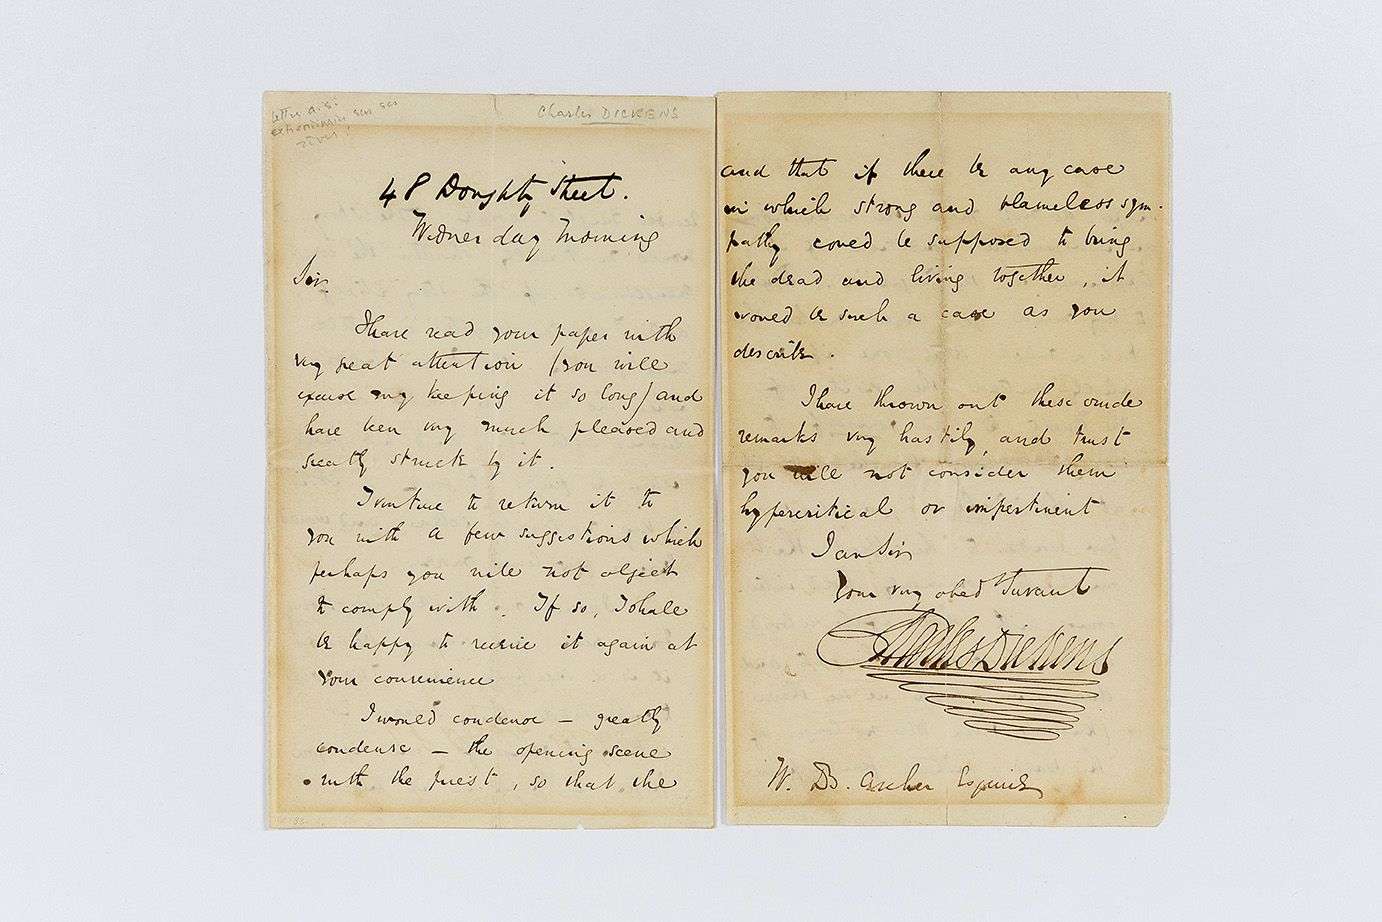 letter a.s.
Charles DICKENS
48 Doughty Street.
Wednesday Morning
Sir
I have read your paper with
very great attention (you will
excuse my keeping it so long) and
have been very much pleased and
greatly struck by it.
I venture to return it to
you with a few suggestions which
perhaps you will not object
to comply with. If so, I shall
be happy to receive it again at
your convenience
I would condense – greatly
condense – the opening scene
with the priest, so that the
and that if there be any case
in which strong and blameless sym-
pathy could be supposed to bring
the dead and living together, it
would be such a case as you
describe.
I have thrown out these crude
remarks very hastily, and trust
you will not consider them
hypercritical or impertinent
I am Sir
Your very obed Servant
Charles Dickens
W. B. Archer Esquire